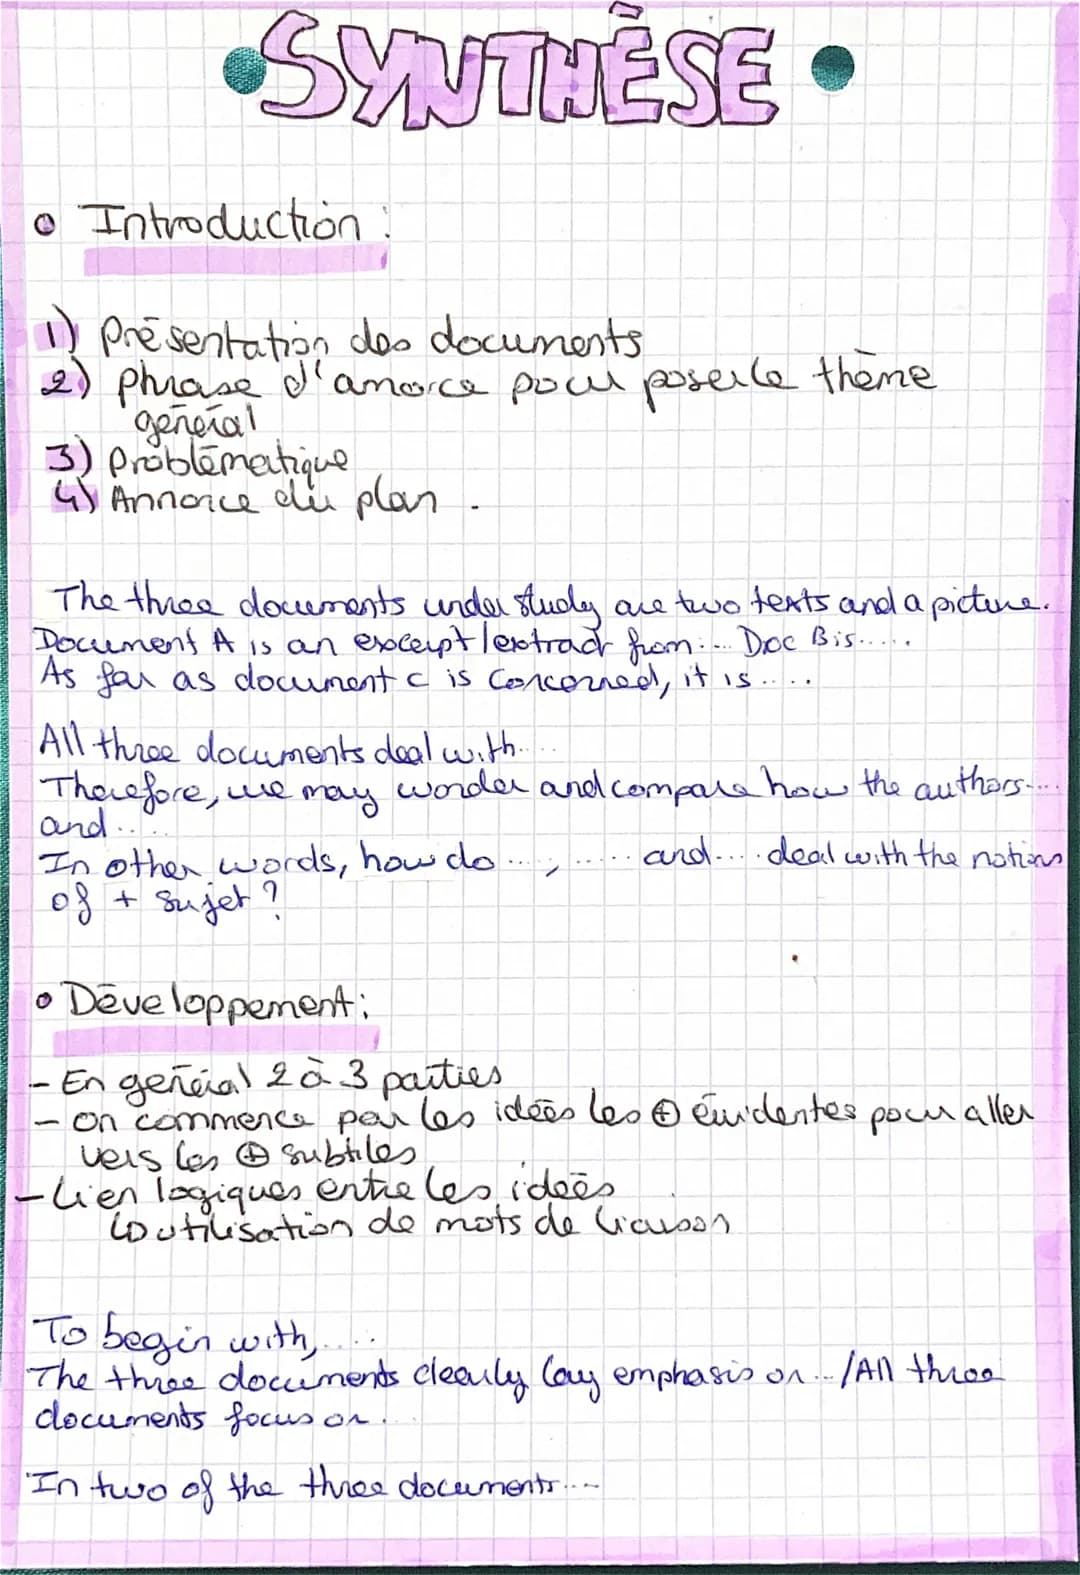 SYNTHÈSE
Introduction :
1) Présentation des documents
2) phrase d'amorce pour poser le thème
général
3) Problématique
4) Annonce du plan.
The three documents under study are two texts and a picture.
Document A is an excerpt/extract from.... Doc B is.....
As far as document C is concerned, it is....
All three documents deal with....
Therefore, we may wonder and compare how the authors....
and....
In other words, how do ...., ..... and.... deal with the notions
of + sujet ?
Développement :
- En général 2 à 3 parties
- on commence par les idées les ⊕ évidentes pour aller
vers les ⊕ subtiles
- Lien logiques entre les idées
↳ utilisation de mots de liaison
To begin with,....
The three documents clearly lay emphasis on.../All three
documents focus on.
In two of the three documents....